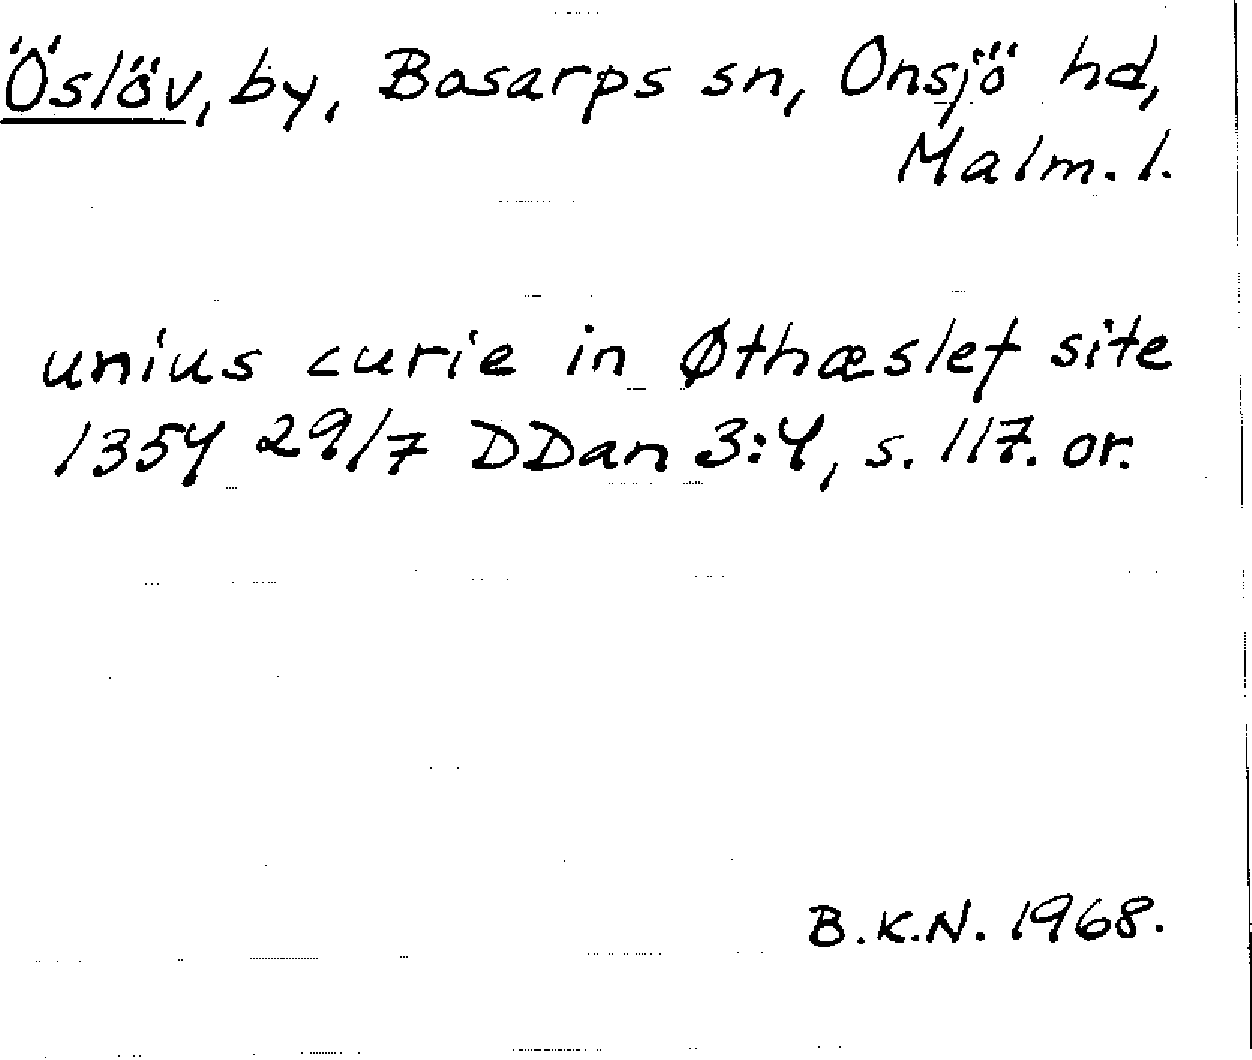 Öslöv, by, Bosarps sn, Onsjö hd,
Malm. l.
unius curie in Øthæslef site
1354 29/7 DDan 3:4, s. 117. or.
B.K.N. 1968.